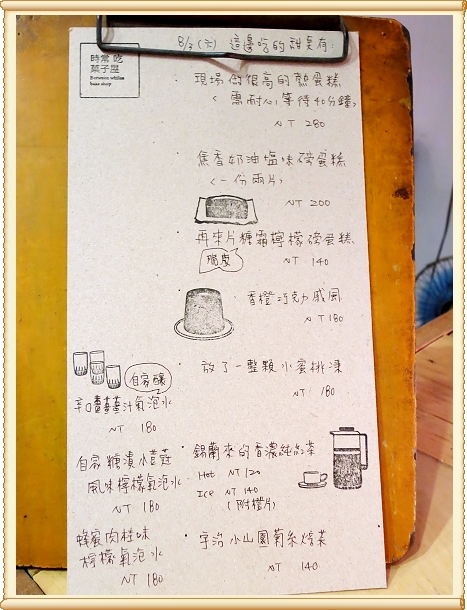 8/3 (六) 這邊吃的甜點有:
時常吃
菓子屋
Between whiles
bake shop
・現場做很高的熱蛋糕
(需耐心等待40分鐘)
NT 280
焦香奶油塩味磅蛋糕
(一份兩片)
NT 200
・再來片糖霜檸檬磅蛋糕
脆皮
NT 140
・香橙巧克力戚風
NT 180
・放了一整顆水蜜桃凍
NT 180
自家釀
辛口薑薑薑汁氣泡水
NT 180
自家糖漬小荳蔻
風味檸檬氣泡水
NT 180
蜂蜜肉桂味
檸檬氣泡水
NT 180
・錫蘭來的香濃純紅茶
Hot NT 120
Ice NT 140
(附橙片)
・宇治小山園菊糸焙茶
NT 140